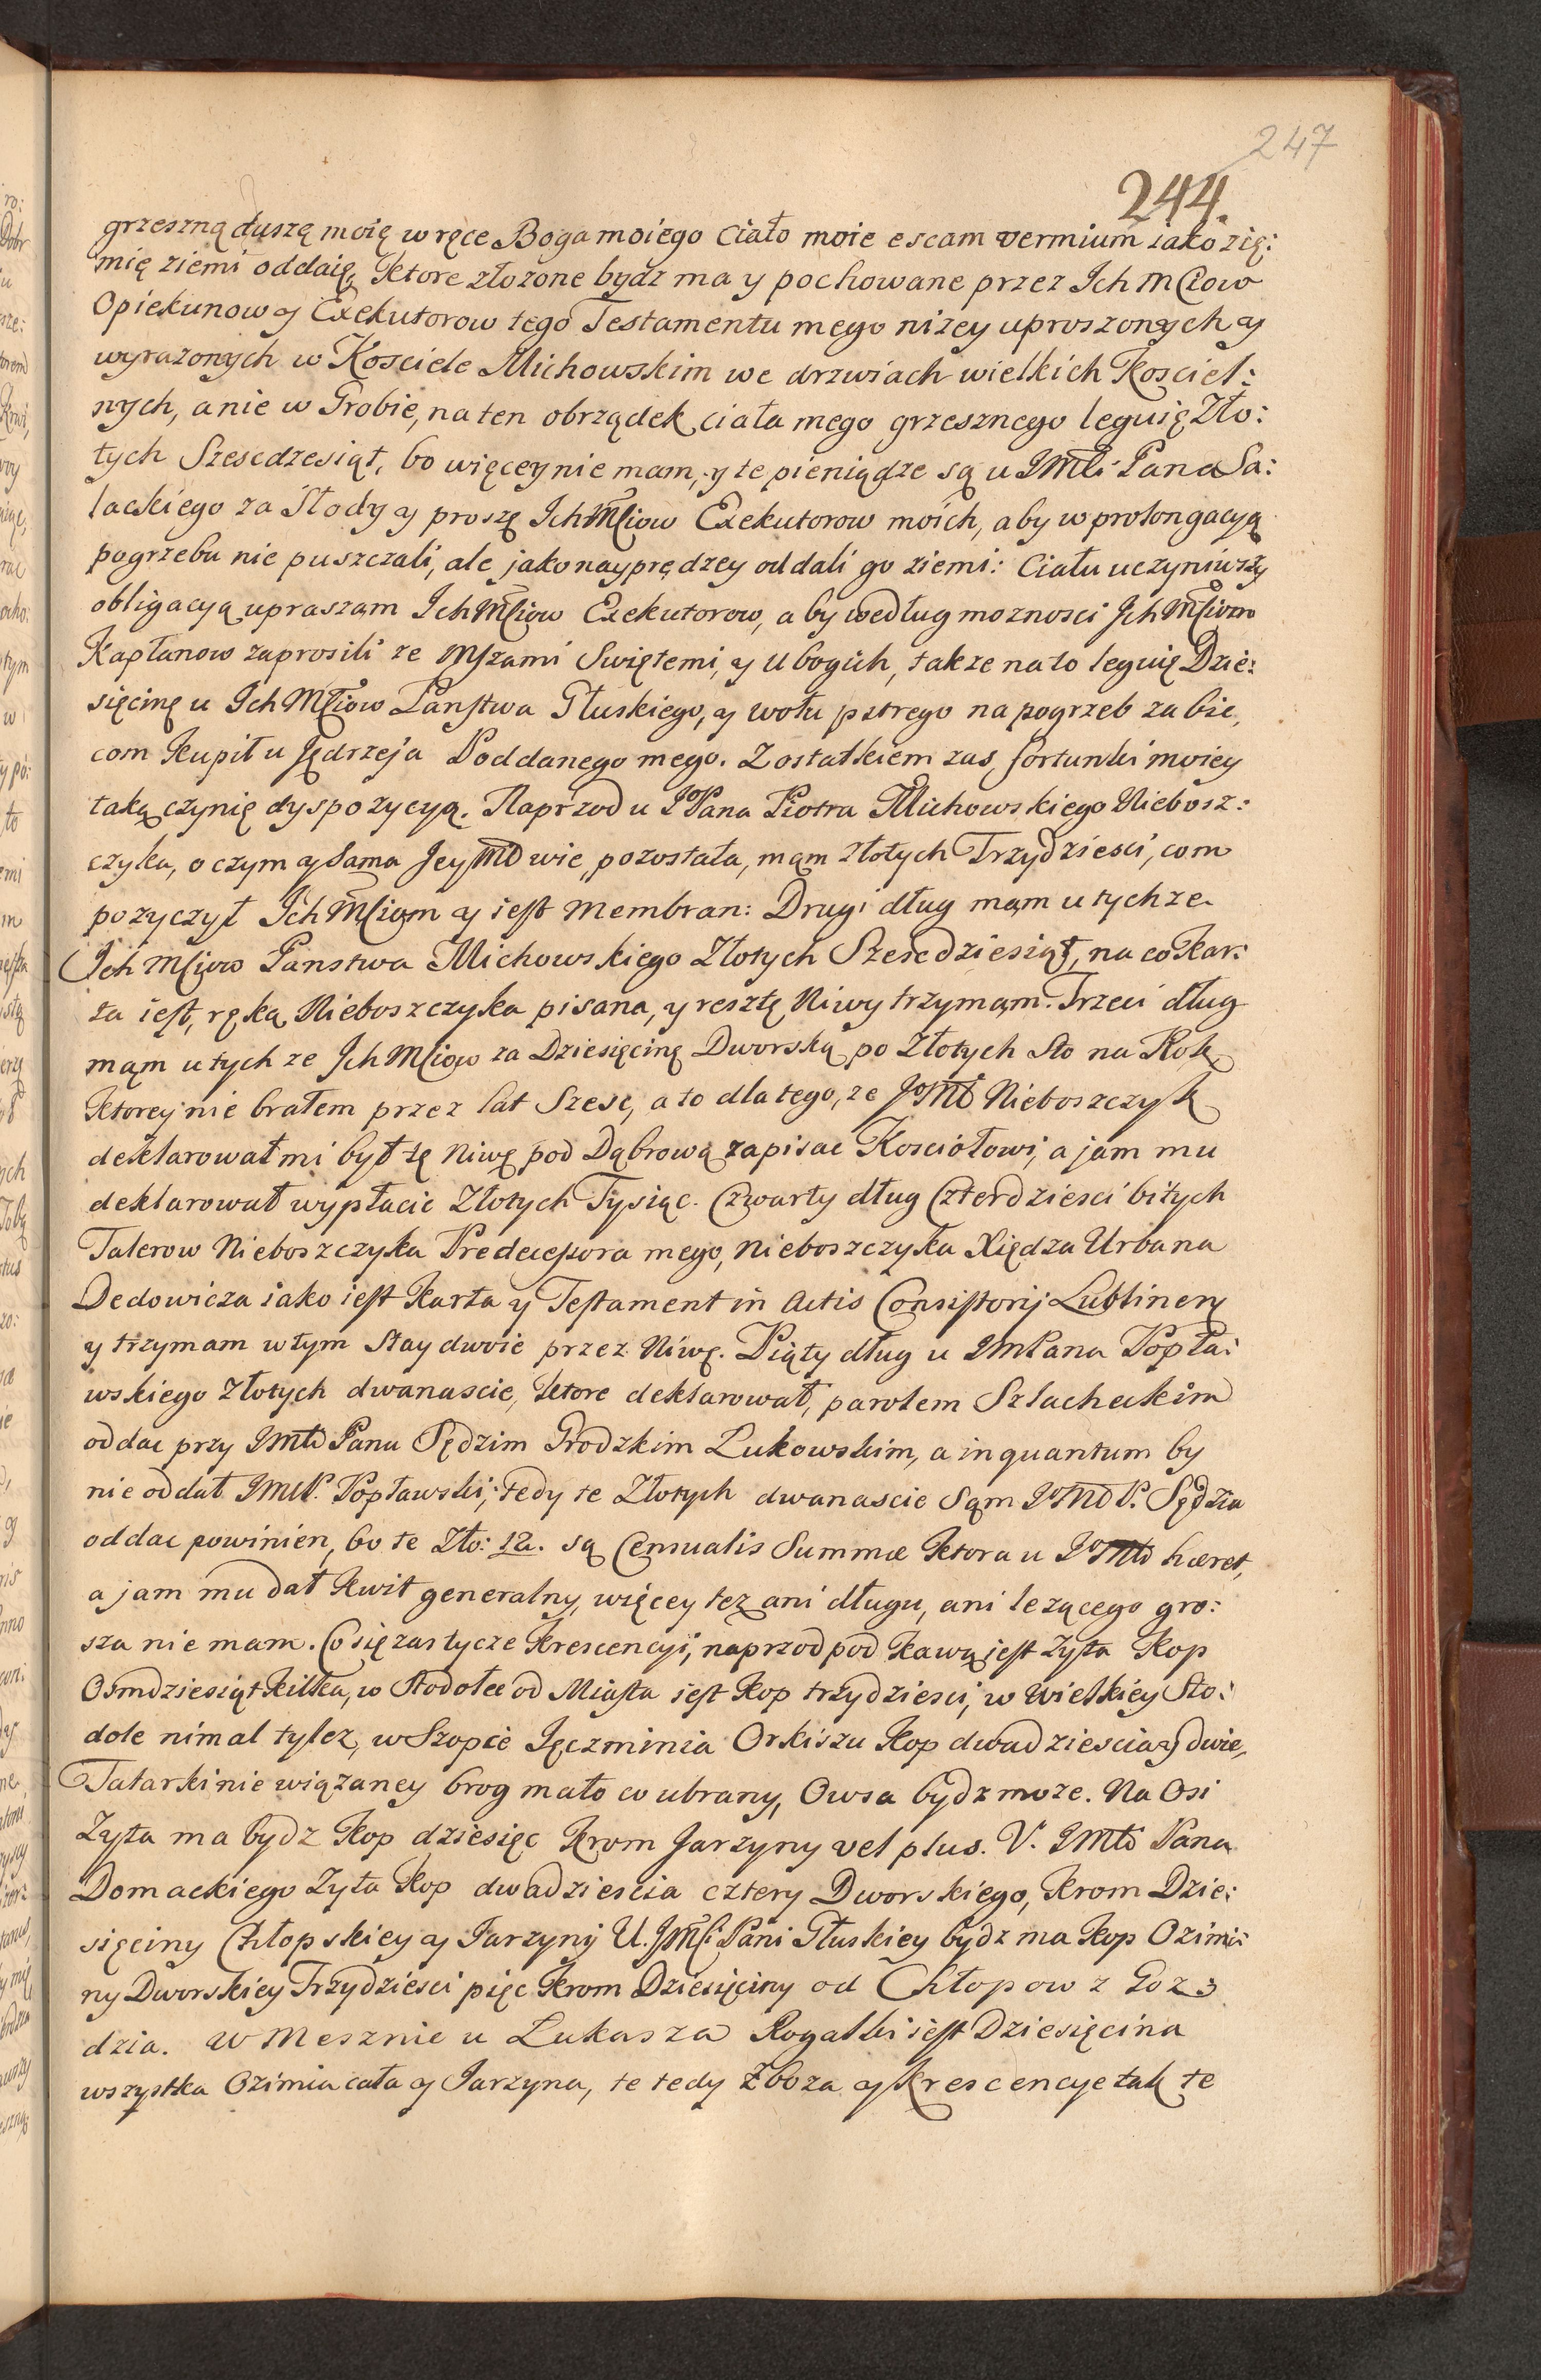 247
244.
grzeszną duszą moię w ręce Boga moiego Ciało moie escam vermium iako zię:
mię ziemi oddaię, ktore złozone bydz ma y pochowane przez Ich Mciow
Opiekunow y Exekutorow tego Testamentu mego nizey uproszonych y
wyrazonych w Kosciele Michowskim we drzwiach wielkich Kosciel:
nych, a nie w Grobie, na ten obrządek ciała mego grzesznego leguię Zło:
tych Szescdzesiąt, bo więcey nie mam, y te pieniądze są u JMći Pana Sa:
lackiego za Słody y proszę Ich Mciow Exekutorow moich, aby w prolongacyą
pogrzebu nie puszczali, ale jako nayprędzey oddali go ziemi: Ciału uczyniwszy
obligacyą upraszam Ich Mciow Exekutorow, aby według moznosci Ich Mciow
Kapłanow zaprosili ze Mszami Swiętemi, y Ubogich, takze na to leguię Dzie:
sięcinę u Ich Mciow Panstwa Głuskiego, y wołu pstrego na pogrzeb zabic,
com kupił u Jędrzeja Poddanego mego. Z ostatkiem zas fortunki moiey
taką czynię dyspozycyą. Naprzod u JPana Piotra Michowskiego Niebosz:
czyka, o czym y Sama Jey Mć wie, pozostała, mąm złotych Trzydziesci, com
pozyczył Ich Mciom y iest Membran: Drugi dług mąm u tychze
Ich Mciow Panstwa Michowskiego Złotych Szescdziesiąt, na co Kar:
ta iest, ręką Nieboszczyka pisana, y resztę Niwy trzymąm. Trzeci dług
mąm u tych ze Ich Mciow za Dziesięcinę Dworską po Złotych Sto na Rok,
ktorey nie brałem przez lat Szesc, a to dla tego, ze JoMć Nieboszczyk
deklarował mi był tę Niwę pod Dąbrową zapisac Kosciołowi, a jam mu
deklarował wypłacic Złotych Tysiąc. Czwarty dług Czterdziesci bitych
Talerow Nieboszczyka Predecessora mego, Nieboszczyka Xiędza Urbana
Dedowicza iako iest Karta y Testament in Actis Consistorij Lublinen
y trzymam w tym Stay dwoie przez Niwę. Piąty dług u JmPana Popła:
wskiego Złotych dwanascie, ktore deklarował, parolem Szlacheckim
oddac przy JMć Panu Sędzim Grodzkim Lukowskim, a inquantum by
nie oddał JmćP. Popławski, tedy te Złotych dwanascie Sąm JoMć P. Sędzia
oddac powinien, bo te Zło: 12. są Censualis Summæ ktora u JoMć hæret,
a jam mu dał Kwit generalny, więcey tez ani długu, ani lezącego gro:
sza nie mam. Co się zas tycze Krescencyi, naprzod pod Kawą jest zyta Kop
Osmdziesiąt kilka, w Stodołce od Miasta jest Kop trzydziesci, w wielkiey Sto:
dole nimal tylez, w Szopie Jęczminia Orkiszu Kop dwadziescia y dwie,
Tatarki nie wiązaney brog mało co ubrany, Owsa bydz moze. Na Osi
Zyta ma bydz Kop dziesięc krom Jarzyny vel plus. V. JMć Pana
Domackiego Zyta Kop dwadziescia cztery Dworskiego, krom Dzie:
sięciny Chłopskiey y Jarzyny U. JMci Pani Głuskiey bydz ma Kop Ozimi:
ny Dworskiey Trzydziesci pięc krom Dziesięciny od Chłopow z Goz:
dzia. W Mesznie u Lukasza Rogalki jest Dziesięcina
wszystka Ozimia cała y Jarzyna, te tedy Zboza y Krescencye tak te